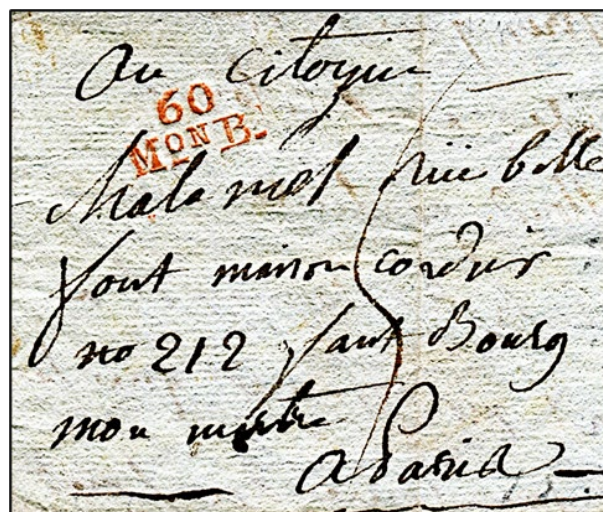 Au citoyin
60
MON B.
Malamet rüe belle
font maison cordier
no 212 faux Bourg
mon martre
a Paris